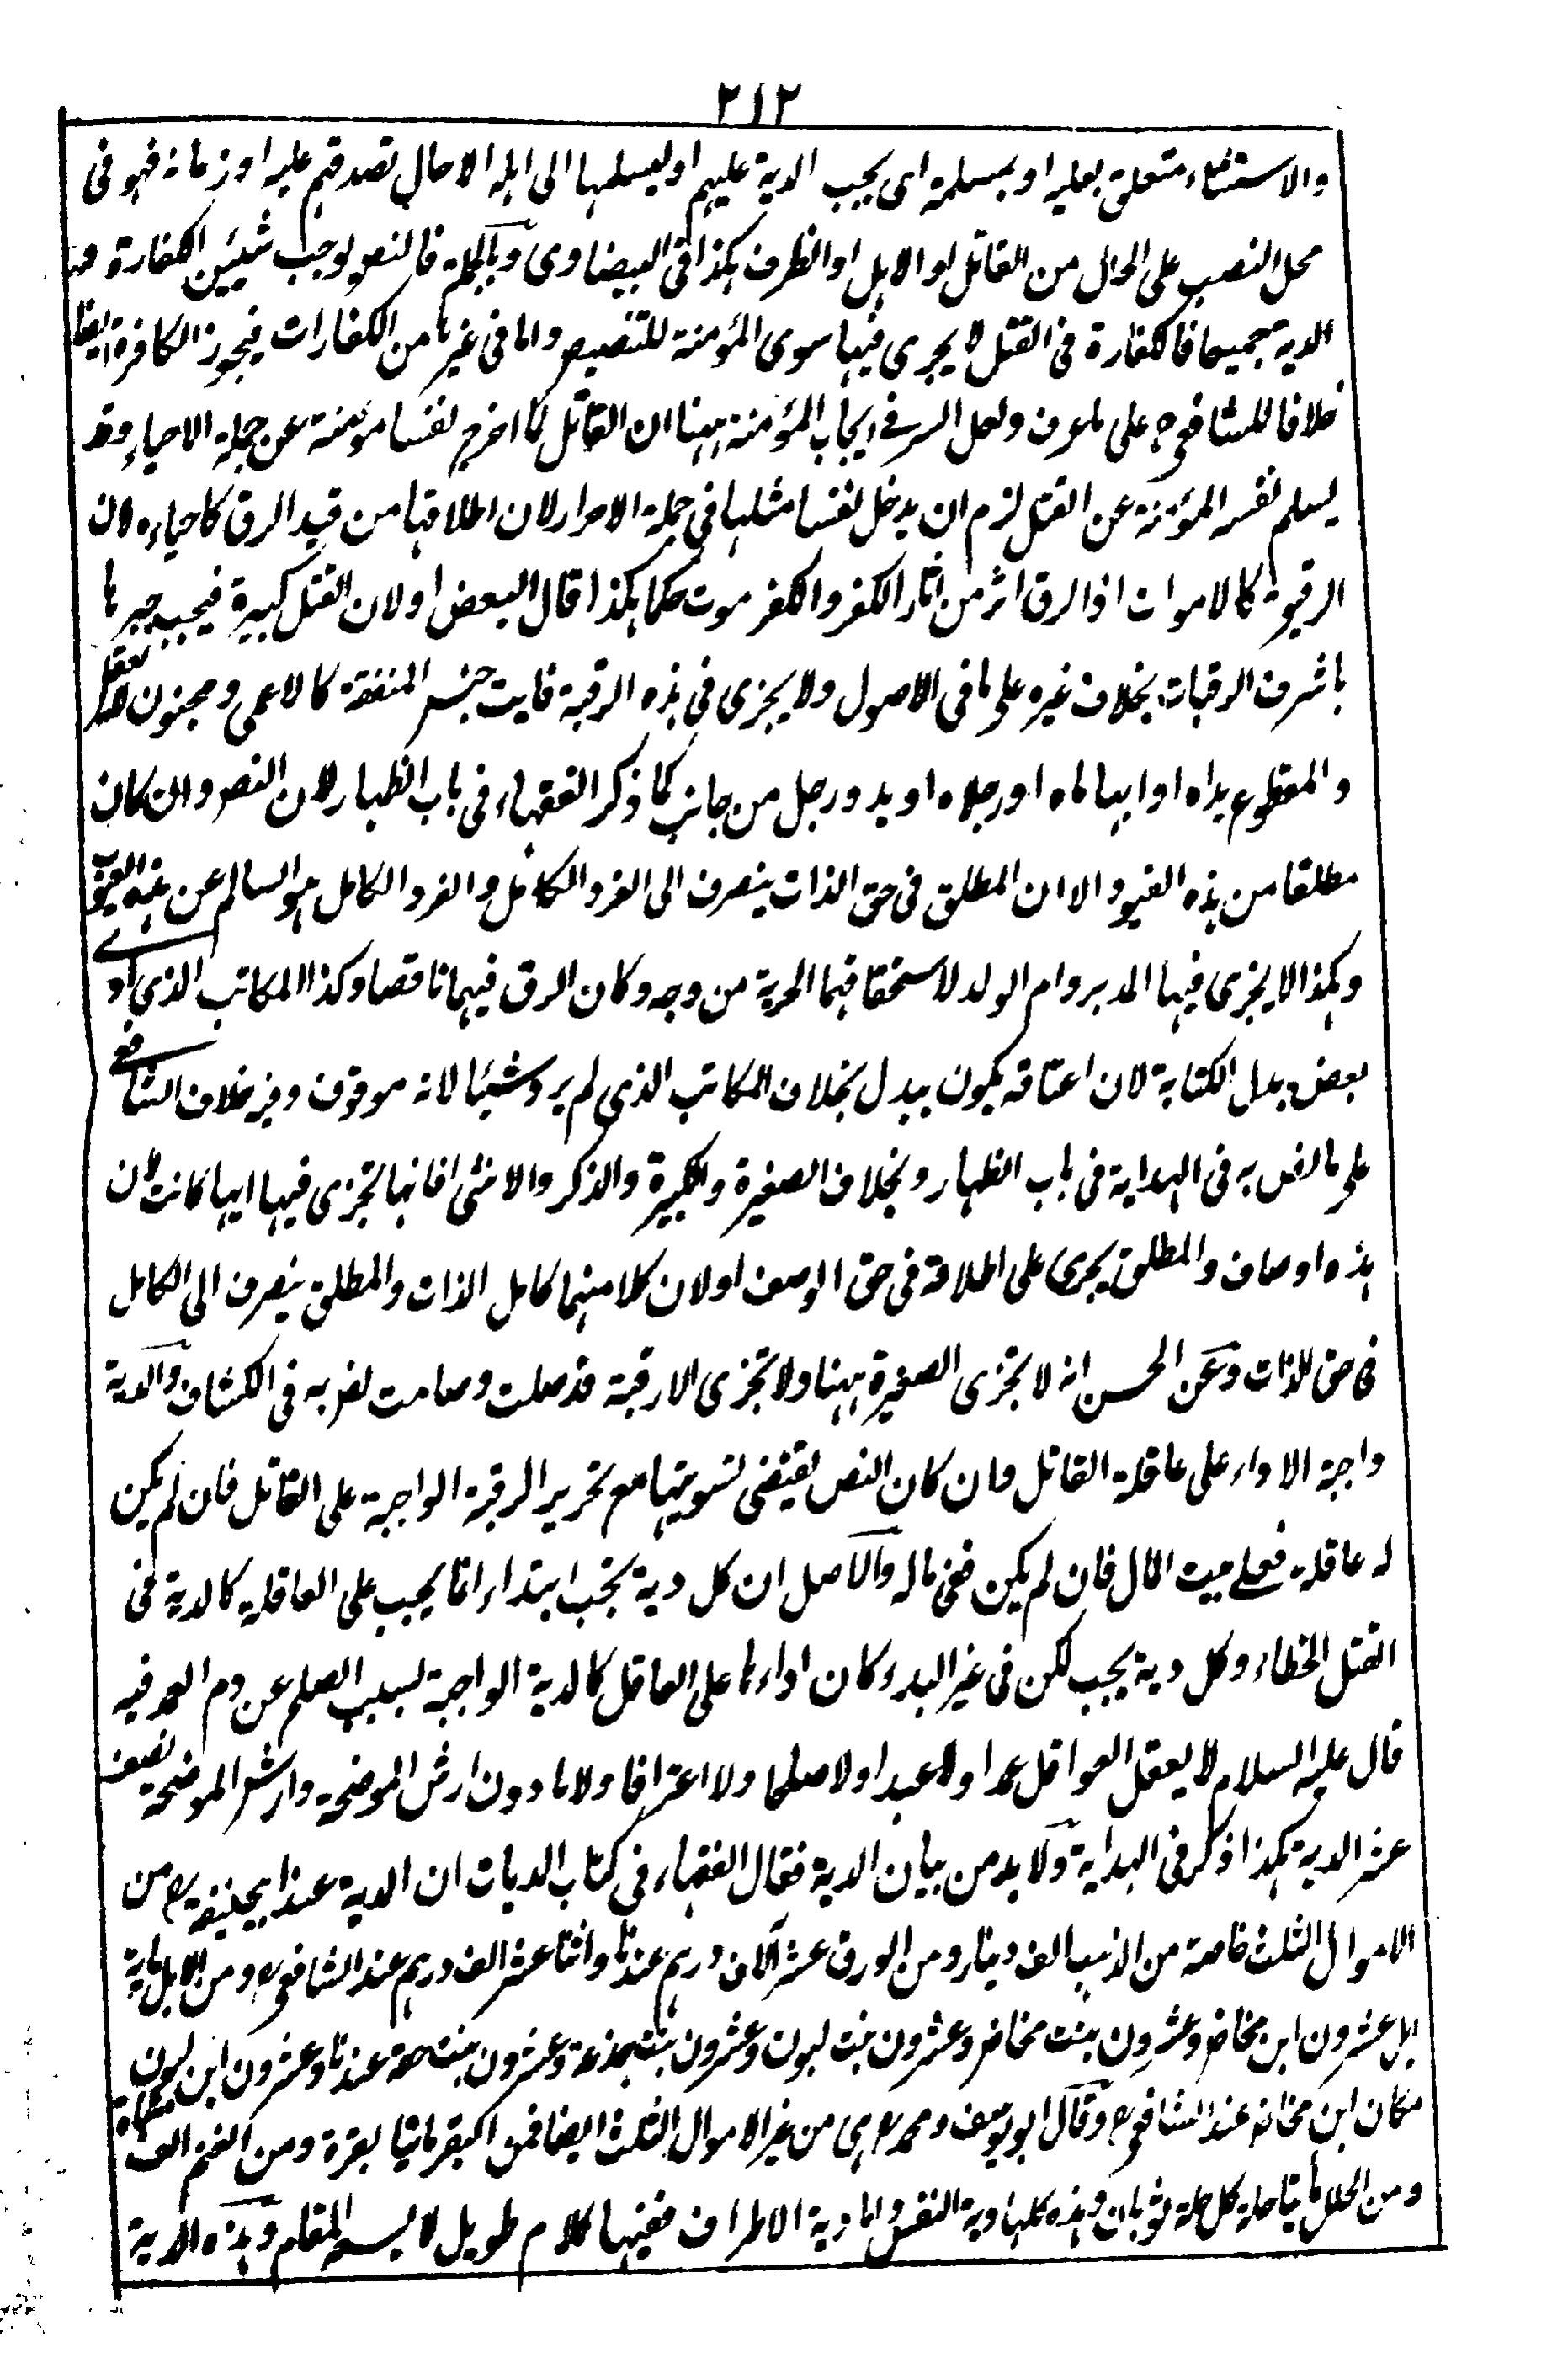 ٢١٢
والاستثناء متعلق بعليه او بمسلمة اى يجب الدية عليهم او يسلمها الى اهله الا حال تصدقهم عليه او زمانه فهو فى
محل النصب على الحال من القاتل او الاهل او الظرف هكذا فى البيضاوى وبالجملة فالنص يوجب شيئين الكفارة و
الدية جميعا فالكفارة فى القتل لا يجرى فيها سوى المؤمنة للتنصيص واما فى غيرها من الكفارات فيجوز الكافرة ايضا
خلافا للشافعى رح على ما عرف ولعل السر فى ايجاب المؤمنة ههنا ان القاتل لما اخرج نفسا مؤمنة عن جملة الاحياء وقد
يسلم نفسه المؤمنة عن القتل لزم ان يدخل نفسا مثلها فى جملة الاحرار لان اطلاقها من قيد الرق كاحياءه لان
الرقيق كالاموات اذ الرق اثر من اثار الكفر والكفر موت حكما هكذا قال البعض او لان القتل كبيرة فيجب جبرها
باشرف الرقبات بخلاف غيره على ما فى الاصول ولا يجزى فى هذه الرقبة فايت جنس المنفعة كالاعمى ومجنون لا يعقل
والمقطوع يداه او ابهاماه او رجلاه او يد ورجل من جانب كما ذكر الفقهاء فى باب الظهار لان النص وان كان
مطلقا من هذه القيود الا ان المطلق فى حق الذات ينصرف الى الفرد الكامل والفرد الكامل هو السالم عن هذه العيوب
وهكذا لا يجزى فيها المدبر وام الولد لاستحقاقهما الحرية من وجه وكان الرق فيهما ناقصا وكذا المكاتب الذى ادى
بعض بدل الكتابة لان اعتاقه يكون ببدل بخلاف المكاتب الذى لم يرد شيئا لانه موقوف وفيه خلاف الشافعى
على ما نص به فى الهداية فى باب الظهار وبخلاف الصغيرة والكبيرة والذكر والانثى فانها تجزى فيها ايها كانت لان
هذه اوصاف والمطلق يجرى على اطلاقه فى حق الوصف او لان كلا منهما كامل الذات والمطلق ينصرف الى الكامل
فى حق الذات وعن الحسن انه لا تجزى الصغيرة ههنا ولا تجزى الا رقبة قد صلت وصامت نص به فى الكشاف والدية
واجبة الاداء على عاقلة القاتل وان كان النص يقتضى تسويتها مع تحرير الرقبة الواجبة على القاتل فان لم يكن
له عاقلة فعلى بيت المال فان لم يكن ففى ماله والاصل ان كل دية تجب ابتداء انما يجب على العاقلة كالدية فى
القتل الخطاء وكل دية يجب لكن فى غير البدء كان اداءها على العاقل كالدية الواجبة بسبب الصلح عن دم العمد فيه
قال عليه السلام لا يعقل العواقل عمدا ولا عبدا ولا صلحا ولا اعترافا ولا ما دون ارش الموضحة وارش الموضحة نصف
عشر الدية هكذا ذكر فى الهداية ولا بد من بيان الدية فقال الفقهاء فى كتاب الديات ان الدية عند ابيحنيفة رح من
الاموال الثلث خاصة من الذهب الف دينار ومن الورق عشرة آلاف درهم عندنا واثنا عشر الف درهم عند الشافعى رح ومن الابل ماية
ابل عشرون ابن مخاض وعشرون بنت مخاض وعشرون بنت لبون وعشرون بنت جذعة وعشرون بنت حقة عندنا وعشرون ابن لبون
مكان ابن مخاض عند الشافعى رح وقال ابو يوسف ومحمد رح هى من غير الاموال الثلث ايضا فمن البقر مائتا بقرة ومن الغنم الف شاة
ومن الحلل مأيتا حلة كل حلة ثوبان وهذه كلها دية النفس واما دية الاطراف ففيها كلام طويل لا يسعه المقام وهذه الدية